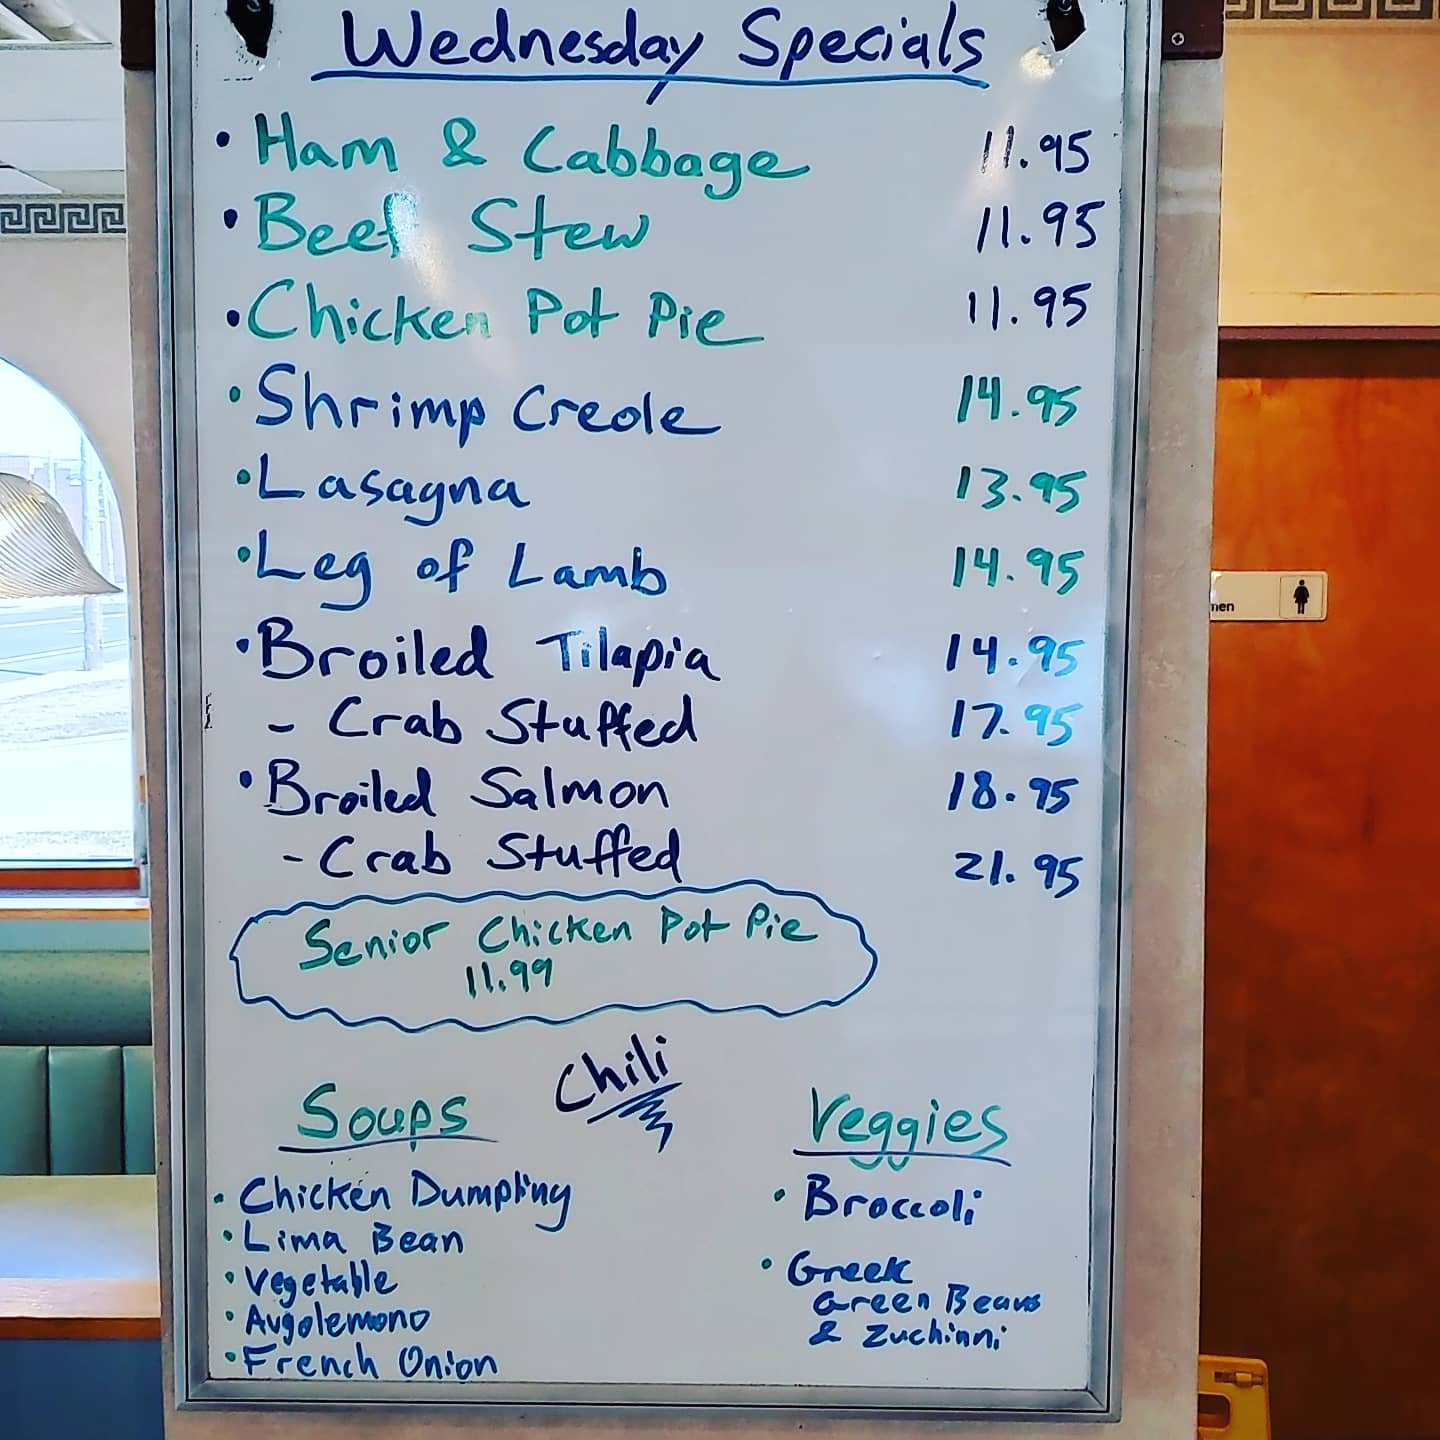 Wednesday Specials
• Ham & Cabbage 11.95
• Beef Stew 11.95
• Chicken Pot Pie 11.95
• Shrimp Creole 14.95
• Lasagna 13.95
• Leg of Lamb 14.95
• Broiled Tilapia 14.95
- Crab Stuffed 17.95
• Broiled Salmon 18.95
- Crab Stuffed 21.95
Senior Chicken Pot Pie
11.99
Chili
Soups
• Chicken Dumpling
• Lima Bean
• Vegetable
• Avgolemono
• French Onion
Veggies
• Broccoli
• Greek
Green Beans
& Zuchinni
men